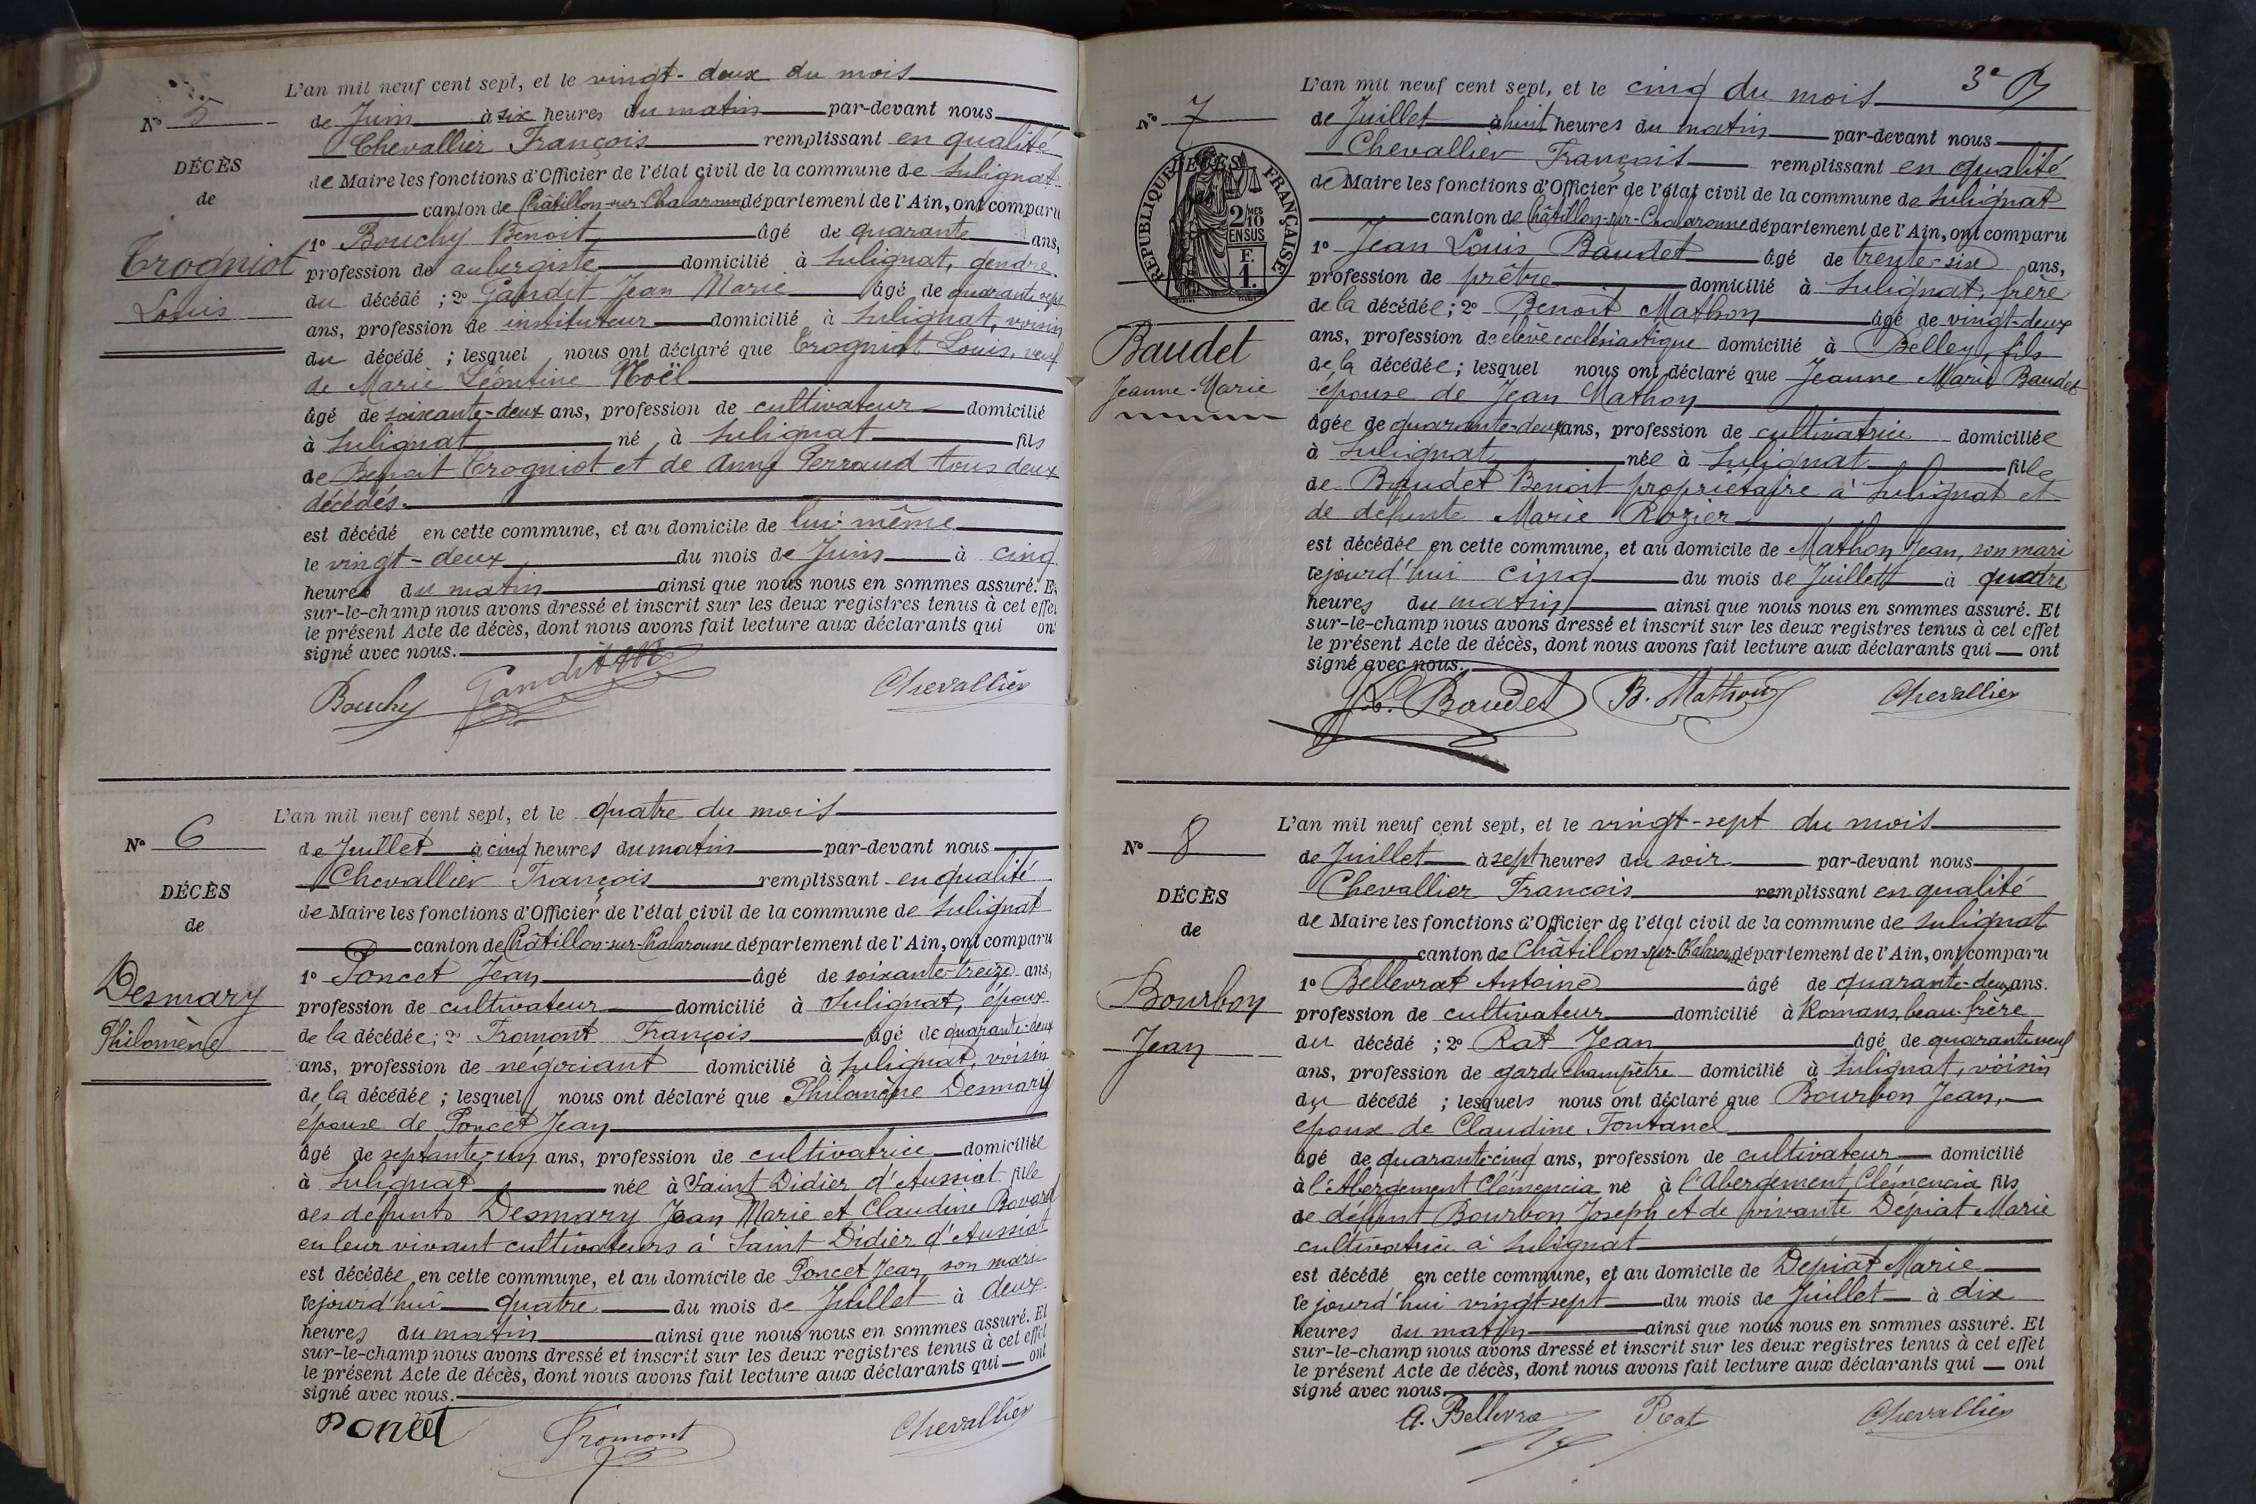 L'an mil neuf cent sept, et le vingt-deux du mois
N° 5
de Juin à six heures du matin par-devant nous
Chevallier François remplissant en qualité
DÉCÈS
de Maire les fonctions d'Officier de l'état civil de la commune de Sulignat
de
canton de Châtillon-sur-Chalaronne département de l'Ain, ont comparu
1° Bouchy Benoit âgé de quarante ans,
Trogniot
profession de aubergiste domicilié à Sulignat, gendre
Louis
du décédé ; 2° Gandit Jean Marie âgé de quarante sept
ans, profession de instituteur domicilié à Sulignat, voisin
du décédé ; lesquel nous ont déclaré que Trogniot Louis, veuf
de Marie Léontine Noël
âgé de soixante-deux ans, profession de cultivateur domicilié
à Sulignat né à Sulignat fils
de Benoit Trogniot et de Anne Perraud tous deux
décédés.
est décédé en cette commune, et au domicile de lui-même
le vingt-deux du mois de Juin à cinq
heures du matin ainsi que nous nous en sommes assuré. Et
sur-le-champ nous avons dressé et inscrit sur les deux registres tenus à cet effet
le présent Acte de décès, dont nous avons fait lecture aux déclarants qui ont
signé avec nous.
Bouchy Gandit JM Chevallier
L'an mil neuf cent sept, et le quatre du mois
N° 6
de Juillet à cinq heures du matin par-devant nous
Chevallier François remplissant en qualité
DÉCÈS
de Maire les fonctions d'Officier de l'état civil de la commune de Sulignat
de
canton de Châtillon-sur-Chalaronne département de l'Ain, ont comparu
1° Poncet Jean âgé de soixante-treize ans,
Desmary
profession de cultivateur domicilié à Sulignat, époux
Philomène
de la décédée ; 2° Fromont François âgé de quarante-deux
ans, profession de négociant domicilié à Sulignat, voisin
de la décédée ; lesquel nous ont déclaré que Philomène Desmary
épouse de Poncet Jean
âgé de septante-un ans, profession de cultivatrice domiciliée
à Sulignat née à Saint Didier d'Aussiat fille
des défunts Desmary Jean Marie et Claudine Bovard
en leur vivant cultivateurs à Saint Didier d'Aussiat
est décédée en cette commune, et au domicile de Poncet Jean, son mari
cejourd'hui quatre du mois de Juillet à deux
heures du matin ainsi que nous nous en sommes assuré. Et
sur-le-champ nous avons dressé et inscrit sur les deux registres tenus à cet effet
le présent Acte de décès, dont nous avons fait lecture aux déclarants qui ont
signé avec nous.
Poncet Fromont Chevallier
3e
L'an mil neuf cent sept, et le cinq du mois
N° 7
de Juillet à huit heures du matin par-devant nous
Chevallier François remplissant en qualité
DÉCÈS
RÉPUBLIQUE FRANÇAISE
2/10 MES EN SUS
F. 1.
de Maire les fonctions d'Officier de l'état civil de la commune de Sulignat
canton de Châtillon-sur-Chalaronne département de l'Ain, ont comparu
1° Jean Louis Baudet âgé de trente-six ans,
profession de prêtre domicilié à Sulignat, frère
de la décédée ; 2° Benoit Mathon âgé de vingt-deux
Baudet
ans, profession de élève ecclésiastique domicilié à Belley, fils
Jeanne-Marie
de la décédée ; lesquel nous ont déclaré que Jeanne Marie Baudet
épouse de Jean Mathon
âgée de quarante-deux ans, profession de cultivatrice domiciliée
à Sulignat née à Sulignat fille
de Baudet Benoit propriétaire à Sulignat et
de défunte Marie Rozier
est décédée en cette commune, et au domicile de Mathon Jean, son mari
cejourd'hui cinq du mois de Juillet à quatre
heures du matin ainsi que nous nous en sommes assuré. Et
sur-le-champ nous avons dressé et inscrit sur les deux registres tenus à cet effet
le présent Acte de décès, dont nous avons fait lecture aux déclarants qui ont
signé avec nous.
J.L. Baudet B. Mathon Chevallier
L'an mil neuf cent sept, et le vingt-sept du mois
N° 8
de Juillet à sept heures du soir par-devant nous
Chevallier François remplissant en qualité
DÉCÈS
de Maire les fonctions d'Officier de l'état civil de la commune de Sulignat
de
canton de Châtillon-sur-Chalaronne département de l'Ain, ont comparu
1° Bellevrat Antoine âgé de quarante-deux ans.
Bourbon
profession de cultivateur domicilié à Romans, beau-frère
Jean
du décédé ; 2° Rat Jean âgé de quarante neuf
ans, profession de garde champêtre domicilié à Sulignat, voisin
du décédé ; lesquels nous ont déclaré que Bourbon Jean,
époux de Claudine Fontanel
âgé de quarante-cinq ans, profession de cultivateur domicilié
à l'Abergement Clémencia né à l'Abergement Clémencia fils
de défunt Bourbon Joseph et de vivante Dépiat Marie
cultivatrice à Sulignat
est décédé en cette commune, et au domicile de Dépiat Marie
cejourd'hui vingt-sept du mois de Juillet à dix
heures du matin ainsi que nous nous en sommes assuré. Et
sur-le-champ nous avons dressé et inscrit sur les deux registres tenus à cet effet
le présent Acte de décès, dont nous avons fait lecture aux déclarants qui ont
signé avec nous.
A. Bellevra Rat Chevallier